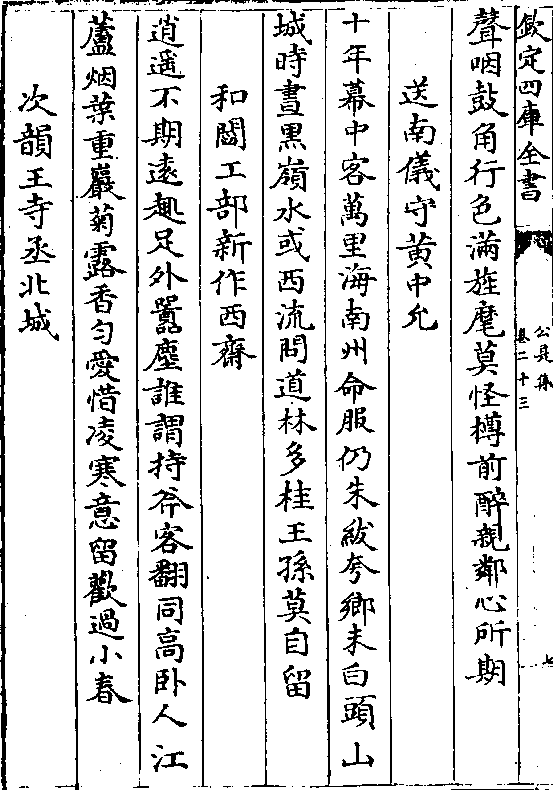 欽定四庫全書
公是集
卷二十三
七
聲咽鼓角行色滿旌麾莫怪樽前醉親鄰心所期
送南儀守黃中允
十年幕中客萬里海南州命服仍朱紱夸鄉未白頭山
城時晝黑嶺水或西流問道林多桂王孫莫自留
和閻工部新作西齋
逍遥不期遠趣足外囂塵誰謂持斧客翻同高卧人江
蘆烟葉重巖菊露香勻愛惜凌寒意留歡過小春
次韻王寺丞北城